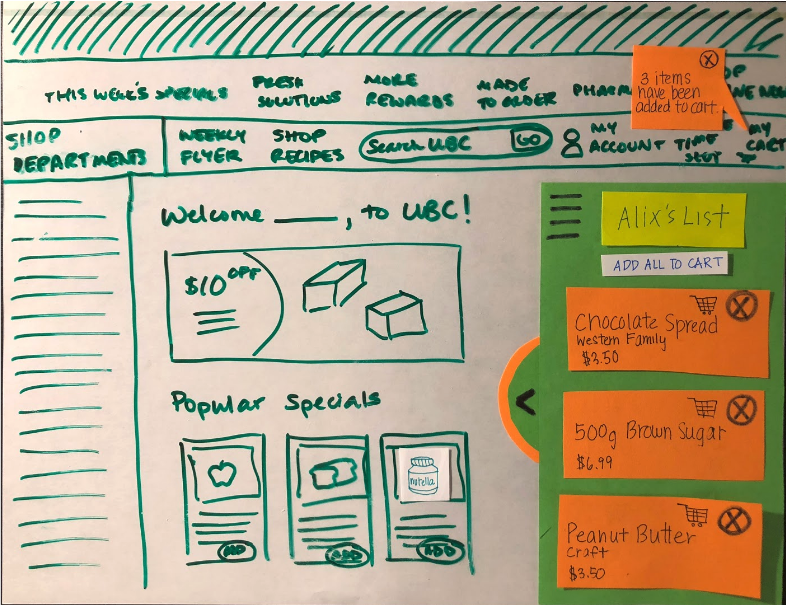 THIS WEEK'S SPECIALS
FRESH
SOLUTIONS
MORE
REWARDS
MADE
TO ORDER
PHARM
3 items
have been
added to cart.
OP
NE
SHOP
DEPARTMENTS
WEEKLY
FLYER
SHOP
RECIPES
Search UBC
GO
MY
ACCOUNT
TIME
SLOT
MY
CART
Welcome ____, to UBC!
$10 OFF
Popular Specials
nutella
ADD
ADD
ADD
Alix's List
ADD ALL TO CART
Chocolate Spread
Western Family
$3.50
500g Brown Sugar
$6.99
Peanut Butter
Craft
$3.50